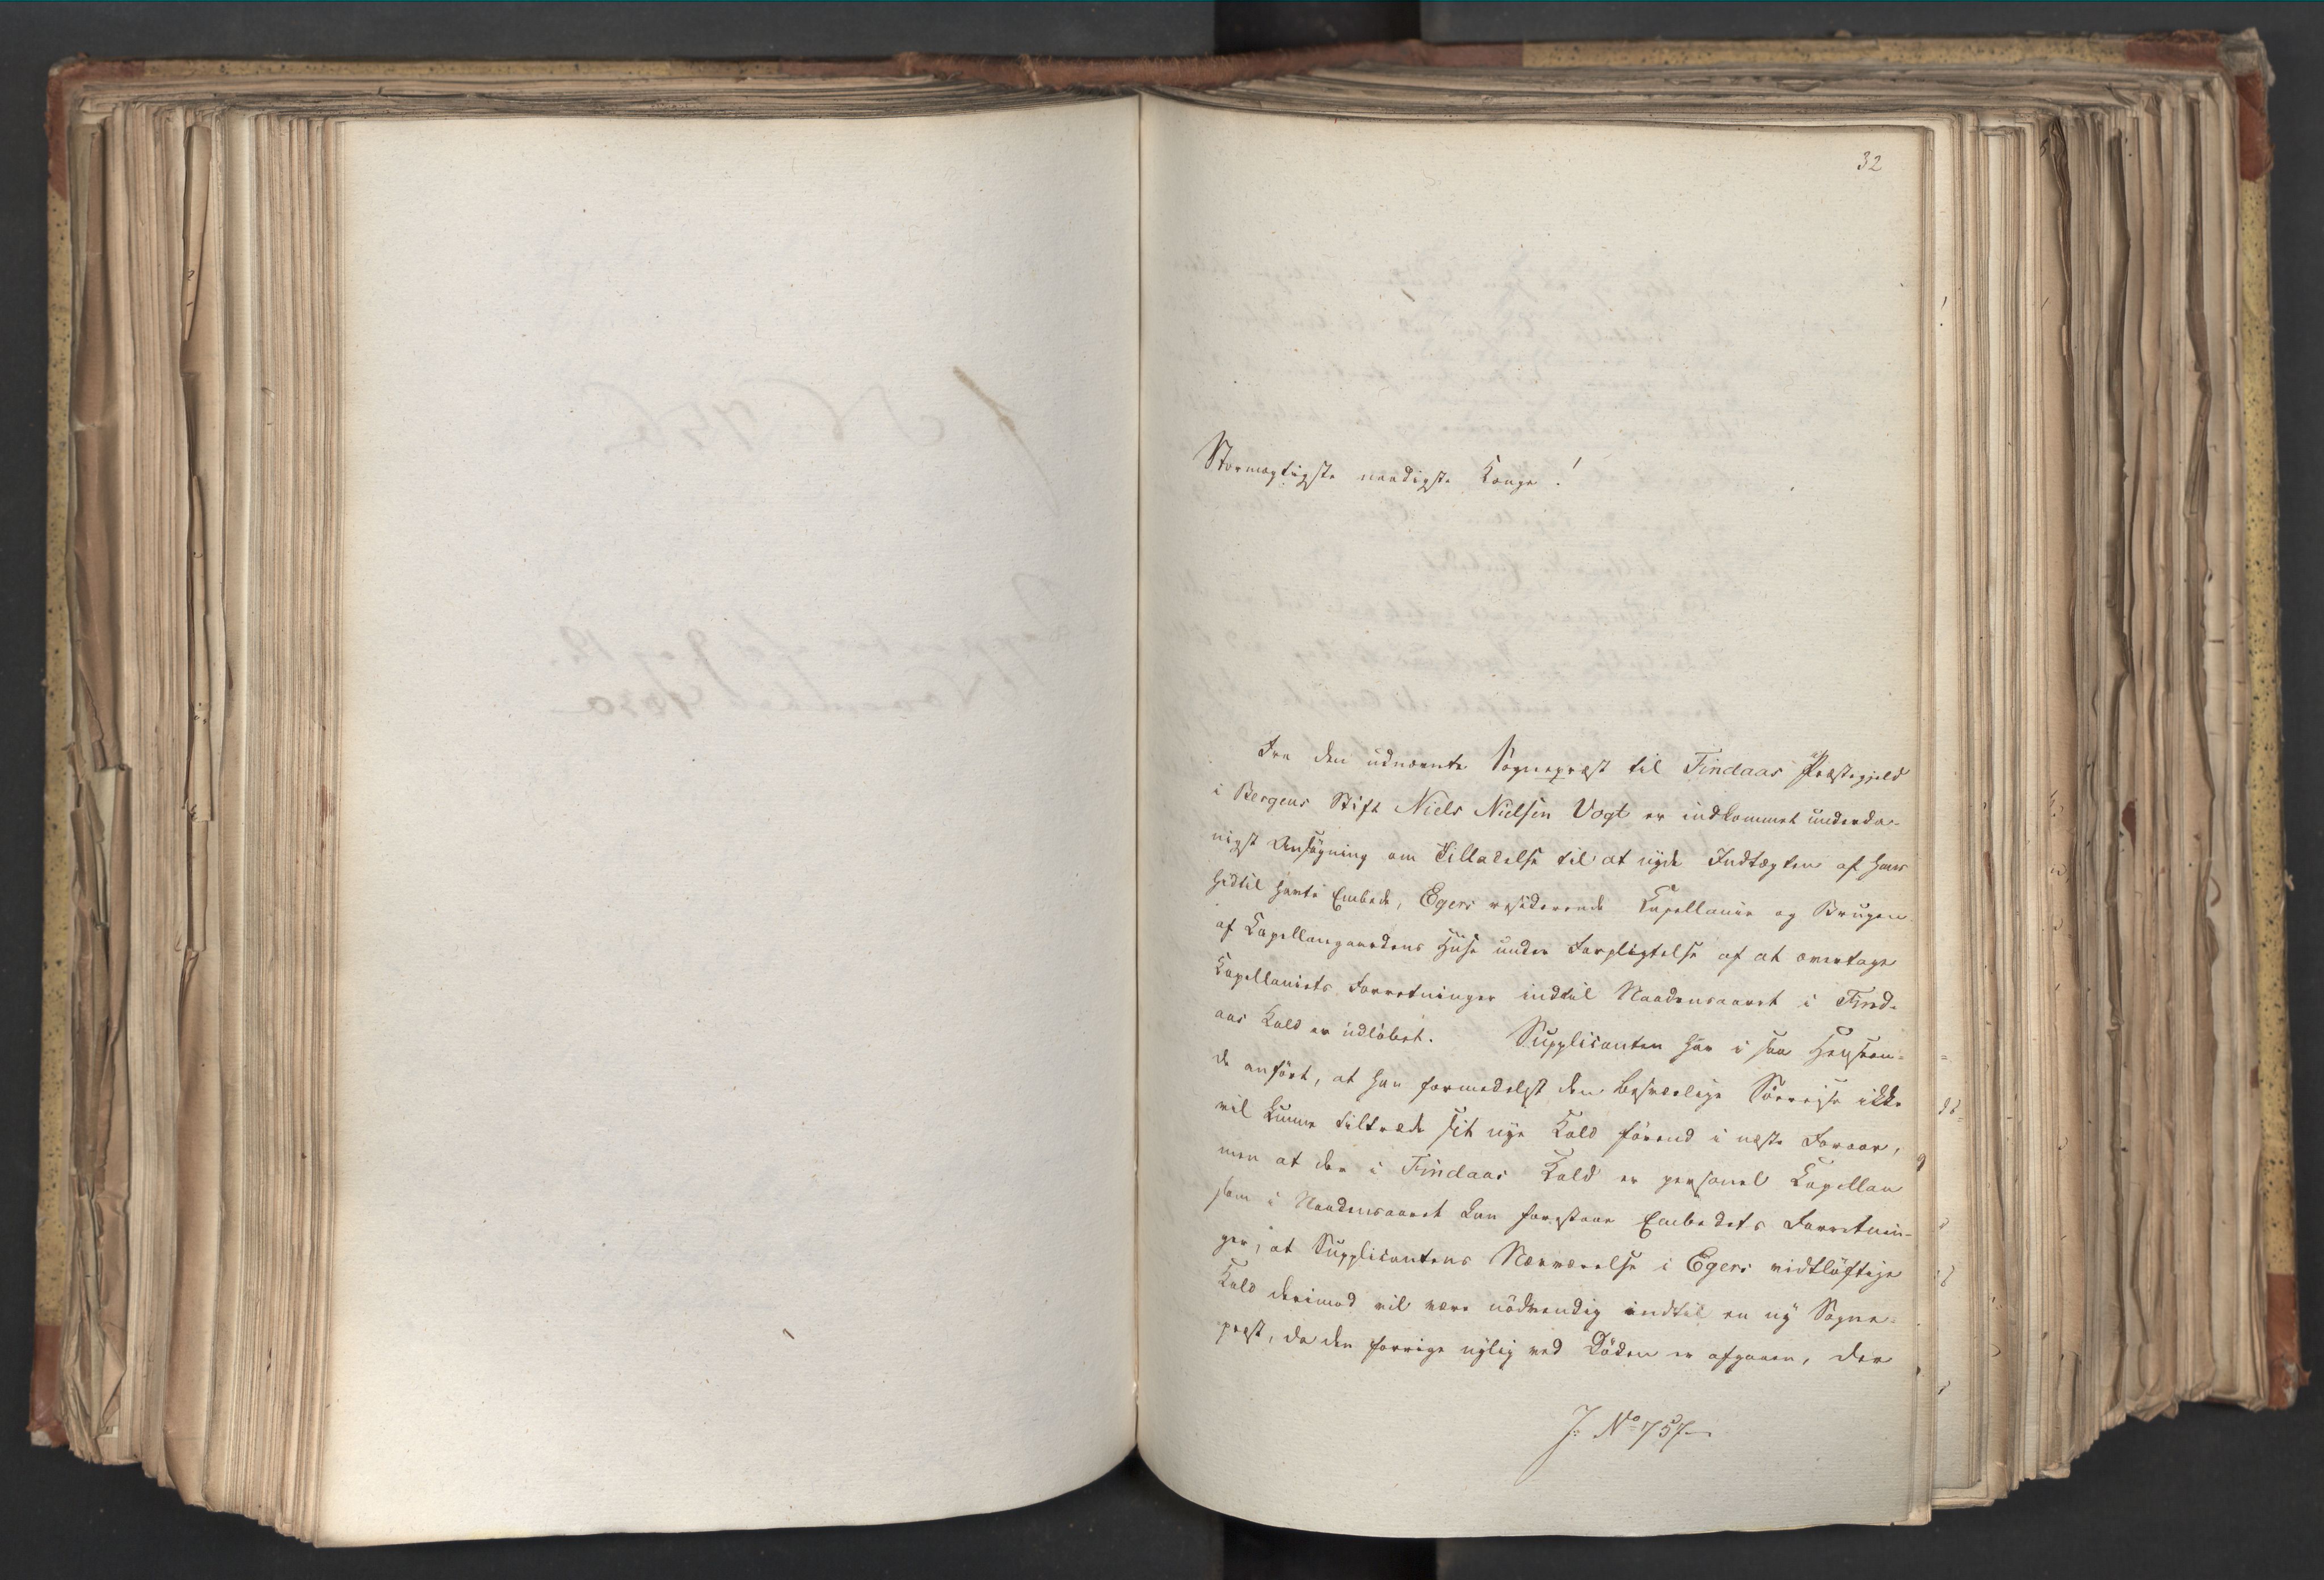 32
Stormægtigste naadigste Konge!
Fra den udnævnte Sognepræst til Findaas Præstegjeld
i Bergens Stift Niels Nielsen Vogt er indkommet underda-
nigst Ansögning om Tilladelse til at nyde Indtægten af hans
hidtil havte Embede, Egers residerende Capellanie og Brugen
af Capellangaardens Huse under Forpligtelse af at overtage
Capellaniets Forretninger indtil Naadensaaret i Find-
aas Kald er udlöbet. Supplicanten har i saa Henseen-
de anfört, at han formedelst den besværlige Söereise ikke
vil kunne tiltræde sit nye Kald förend i næste Foraar,
men at der i Findaas Kald er personel Capellan
som i Naadensaaret kan forestaae Embedets Forretnin-
ger, at Supplicantens Nærværelse i Egers vidtlöftige
Kald derimod vil være nödvendig indtil en ny Sogne-
præst, da den forrige nylig ved Döden er afgaaen, der
J. No 757